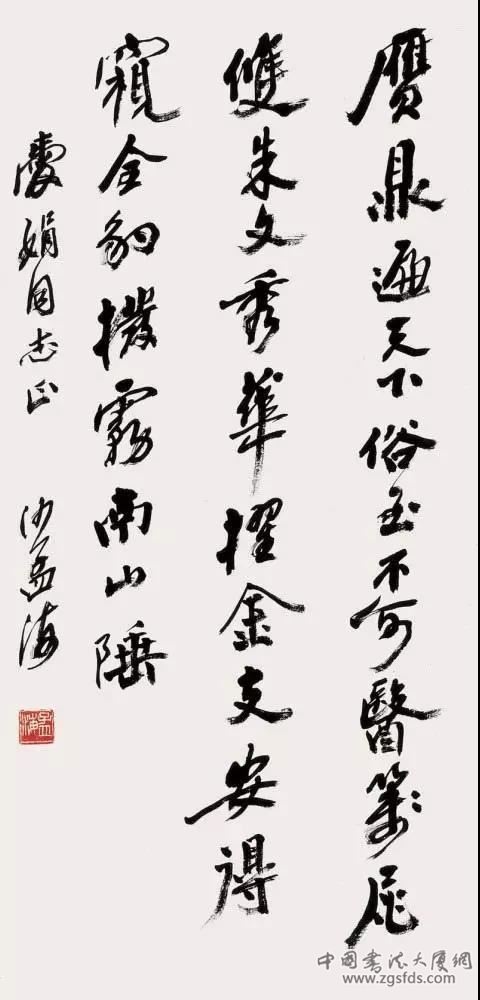 贋鼎遍天下俗至不可醫箋尾
雙朱文秀華擢金支安得
窺全豹撥霧南山陲
慶娟同志正 沙孟海
孟海
中国書法大厦網
www.zgsfds.com